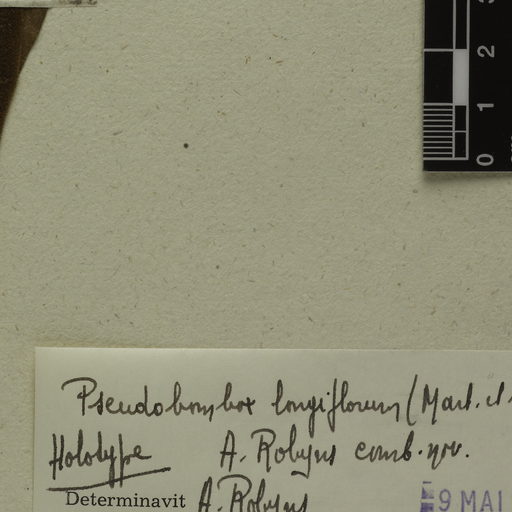 3
2
1
0
Pseudobombax longiflorum (Mart. et
Holotype A. Robyns comb. nov.
Determinavit A. Robyns 9 MAI